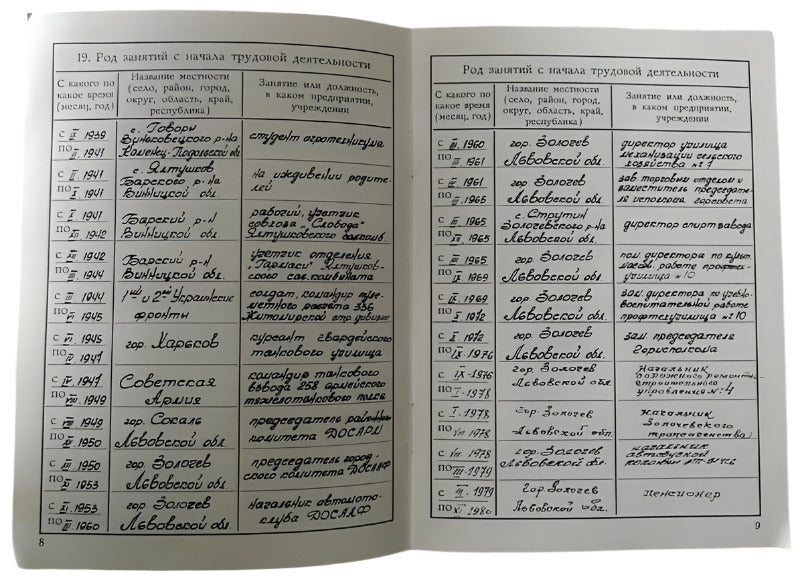 19. Род занятий с начала трудовой деятельности
С какого по какое время (месяц, год)
Название местности (село, район, город, округ, область, край, республика)
Занятие или должность, в каком предприятии, учреждении
с IX 1939 по II 1941
с. Говоры
Виньковецкого р-на
Каменец-Подольской обл.
студент агротехникума
с II 1941 по 1941
с. Ялтушков
Барского р-на
Винницкой обл.
на иждивении родите-
лей
с X 1941 по XII 1942
Барский р-н
Винницкой обл.
рабочий, учетчик
совхоза "Слобода"
Ялтушковского
с XII 1942 по III 1944
Барский р-н
Винницкой обл.
учетчик отделения
"Гармаки" Ялтушков-
ского сах. комбината
с III 1944 по 1945
1ый и 2ой Украинские
фронты
солдат, командир пуле-
метного расчета 336
Житомирской стр. дивизии
с VI 1945 по IV 1947
гор. Харьков
курсант гвардейского
танкового училища
с IV 1947 по VIII 1949
Советская
Армия
командир танкового
взвода 258 армейского
тяжелотанкового полка
с VIII 1949 по XII 1950
гор. Сокаль
Львовской обл.
председатель районного
комитета ДОСАРМ
с XII 1950 по XI 1953
гор. Золочев
Львовской обл.
председатель город-
ского комитета ДОСААФ
с XI 1953 по III 1960
гор. Золочев
Львовской обл.
Начальник автомото-
клуба ДОСААФ
8
Род занятий с начала трудовой деятельности
С какого по какое время (месяц, год)
Название местности (село, район, город, округ, область, край, республика)
Занятие или должность, в каком предприятии, учреждении
с III 1960 по III 1961
гор. Золочев
Львовской обл.
директор училища
механизации сельского
хозяйства № 7
с 1961 по III 1965
гор. Золочев
Львовской обл.
зав. торговым отделом и
заместитель председате-
ля исполкома горсовета
с III 1965 по 1965
с. Струтин
Золочевского р-на
Львовской обл.
директор спиртзавода
с 1965 по IX 1969
гор. Золочев
Львовской обл.
директора по
работе профтех-
училища №10
с IX 1969 по I 1972
гор. Золочев
Львовской обл.
зам. директора по учебно-
воспитательной работе
профтехучилища №10
с I 1972 по IX-1976
гор. Золочев
Львовской обл.
зам. председателя
Горисполкома
с IX-1976 по I-1978
гор. Золочев
Львовской обл.
Начальник
дорожного ремонтно-
строительного
управления №4
с I-1978 по VII 1978
гор. Золочев
Львовской обл.
Начальник
Золочевского
с VII 1978 по III-1979
гор. Золочев
Львовской обл.
начальник
автобусной
колонны
с III-1979 по XI 1980
гор. Золочев
Львовской обл.
Пенсионер
9